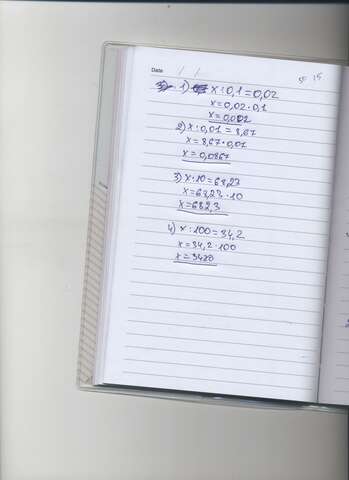 Date / /
1) x : 0,1 = 0,02
x = 0,02 · 0,1
x = 0,002
2) x : 0,01 = 8,67
x = 8,67 · 0,01
x = 0,0867
3) x · 10 = 68,23
x = 68,23 · 10
x = 682,3
4) x : 100 = 34,2
x = 34,2 · 100
x = 3420